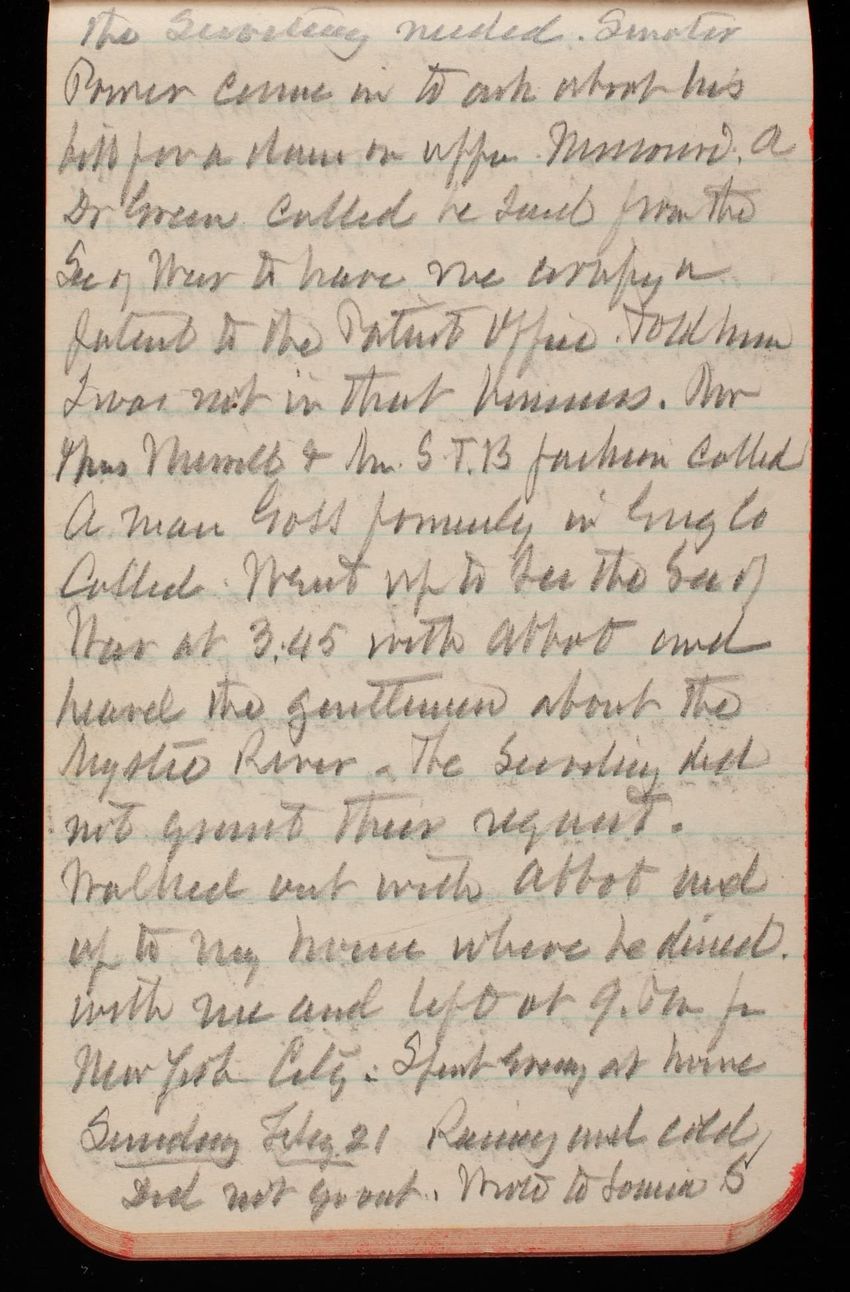 the Secretary needed. Senator
Power came in to ask about his
bill for a dam on upper Missouri. A
Dr Green called he said from the
Sec of War to have me occupy a
patent to the Patent Office. Told him
I was not in that business. Mr
& Mrs Merrill & Mr. S.T.B Jackson called
A man Goss formerly in Eng Co
Called. Went up to see the Sec of
War at 3.45 with Abbot and
heard the gentlemen about the
Mystic River. The Secretary did
not grant their request.
Walked out with Abbot and
up to my house where he dined.
with me and left at 9. for
New York City. Spent evening at home
Sunday Feby 21 Rainy and cold
Did not go out. Wrote to S